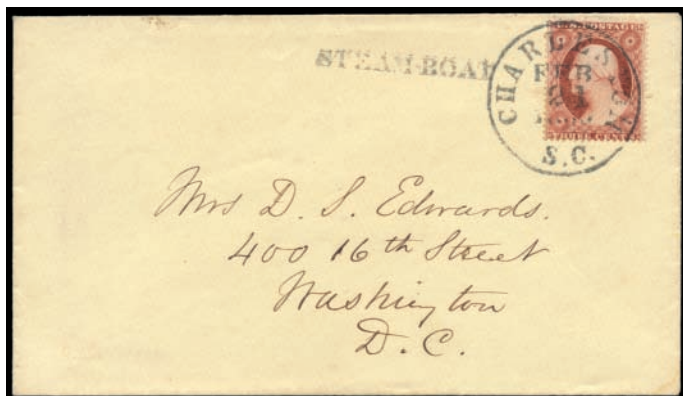 STEAM-BOAT
CHARLESTON
FEB
21
S.C.
THREE CENTS
Mrs D. S. Edwards.
400 16th Street
Washington
D. C.